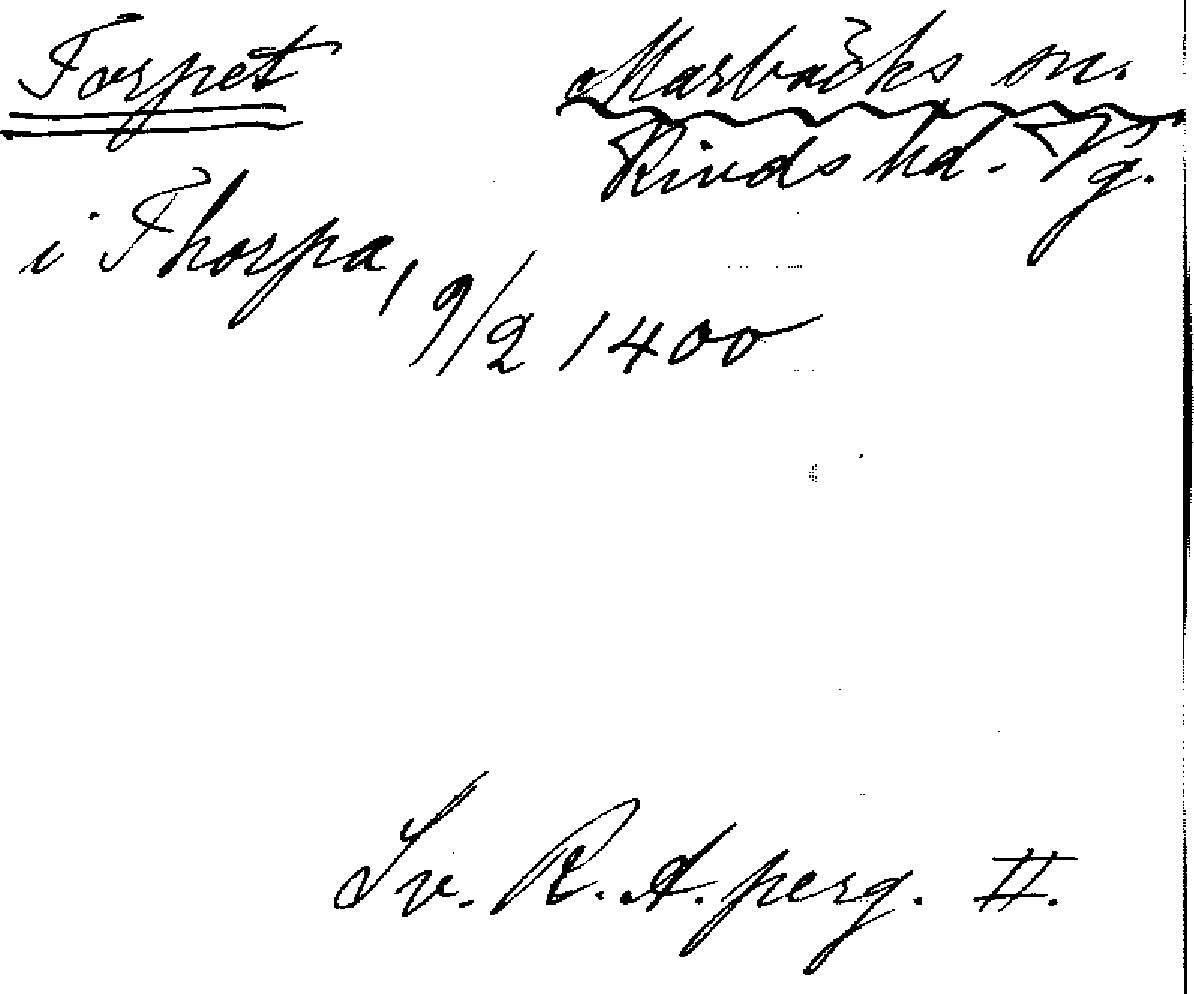 Torpet
Marbäcks sn.
Kinds hd. Vg.
i Thorpa, 9/2 1400
Sv. R. A. perg. II.